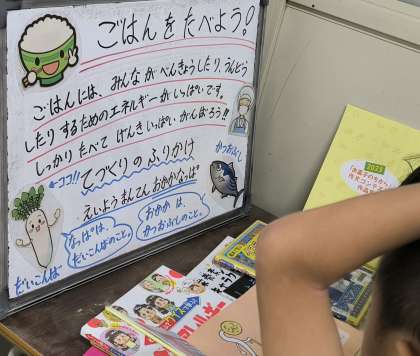 ごはんをたべよう！
ごはんには、みんながべんきょうしたり、うんどう
したりするためのエネルギーがいっぱいです。
しっかりたべてげんきいっぱいがんばろう!!
ココ!!
てづくりのふりかけ
かつおぶし
えいようまんてんおかかなっぱ
なっぱは、
だいこんはのこと。
おかかは、
かつおぶしのこと。
だいこんば
2023